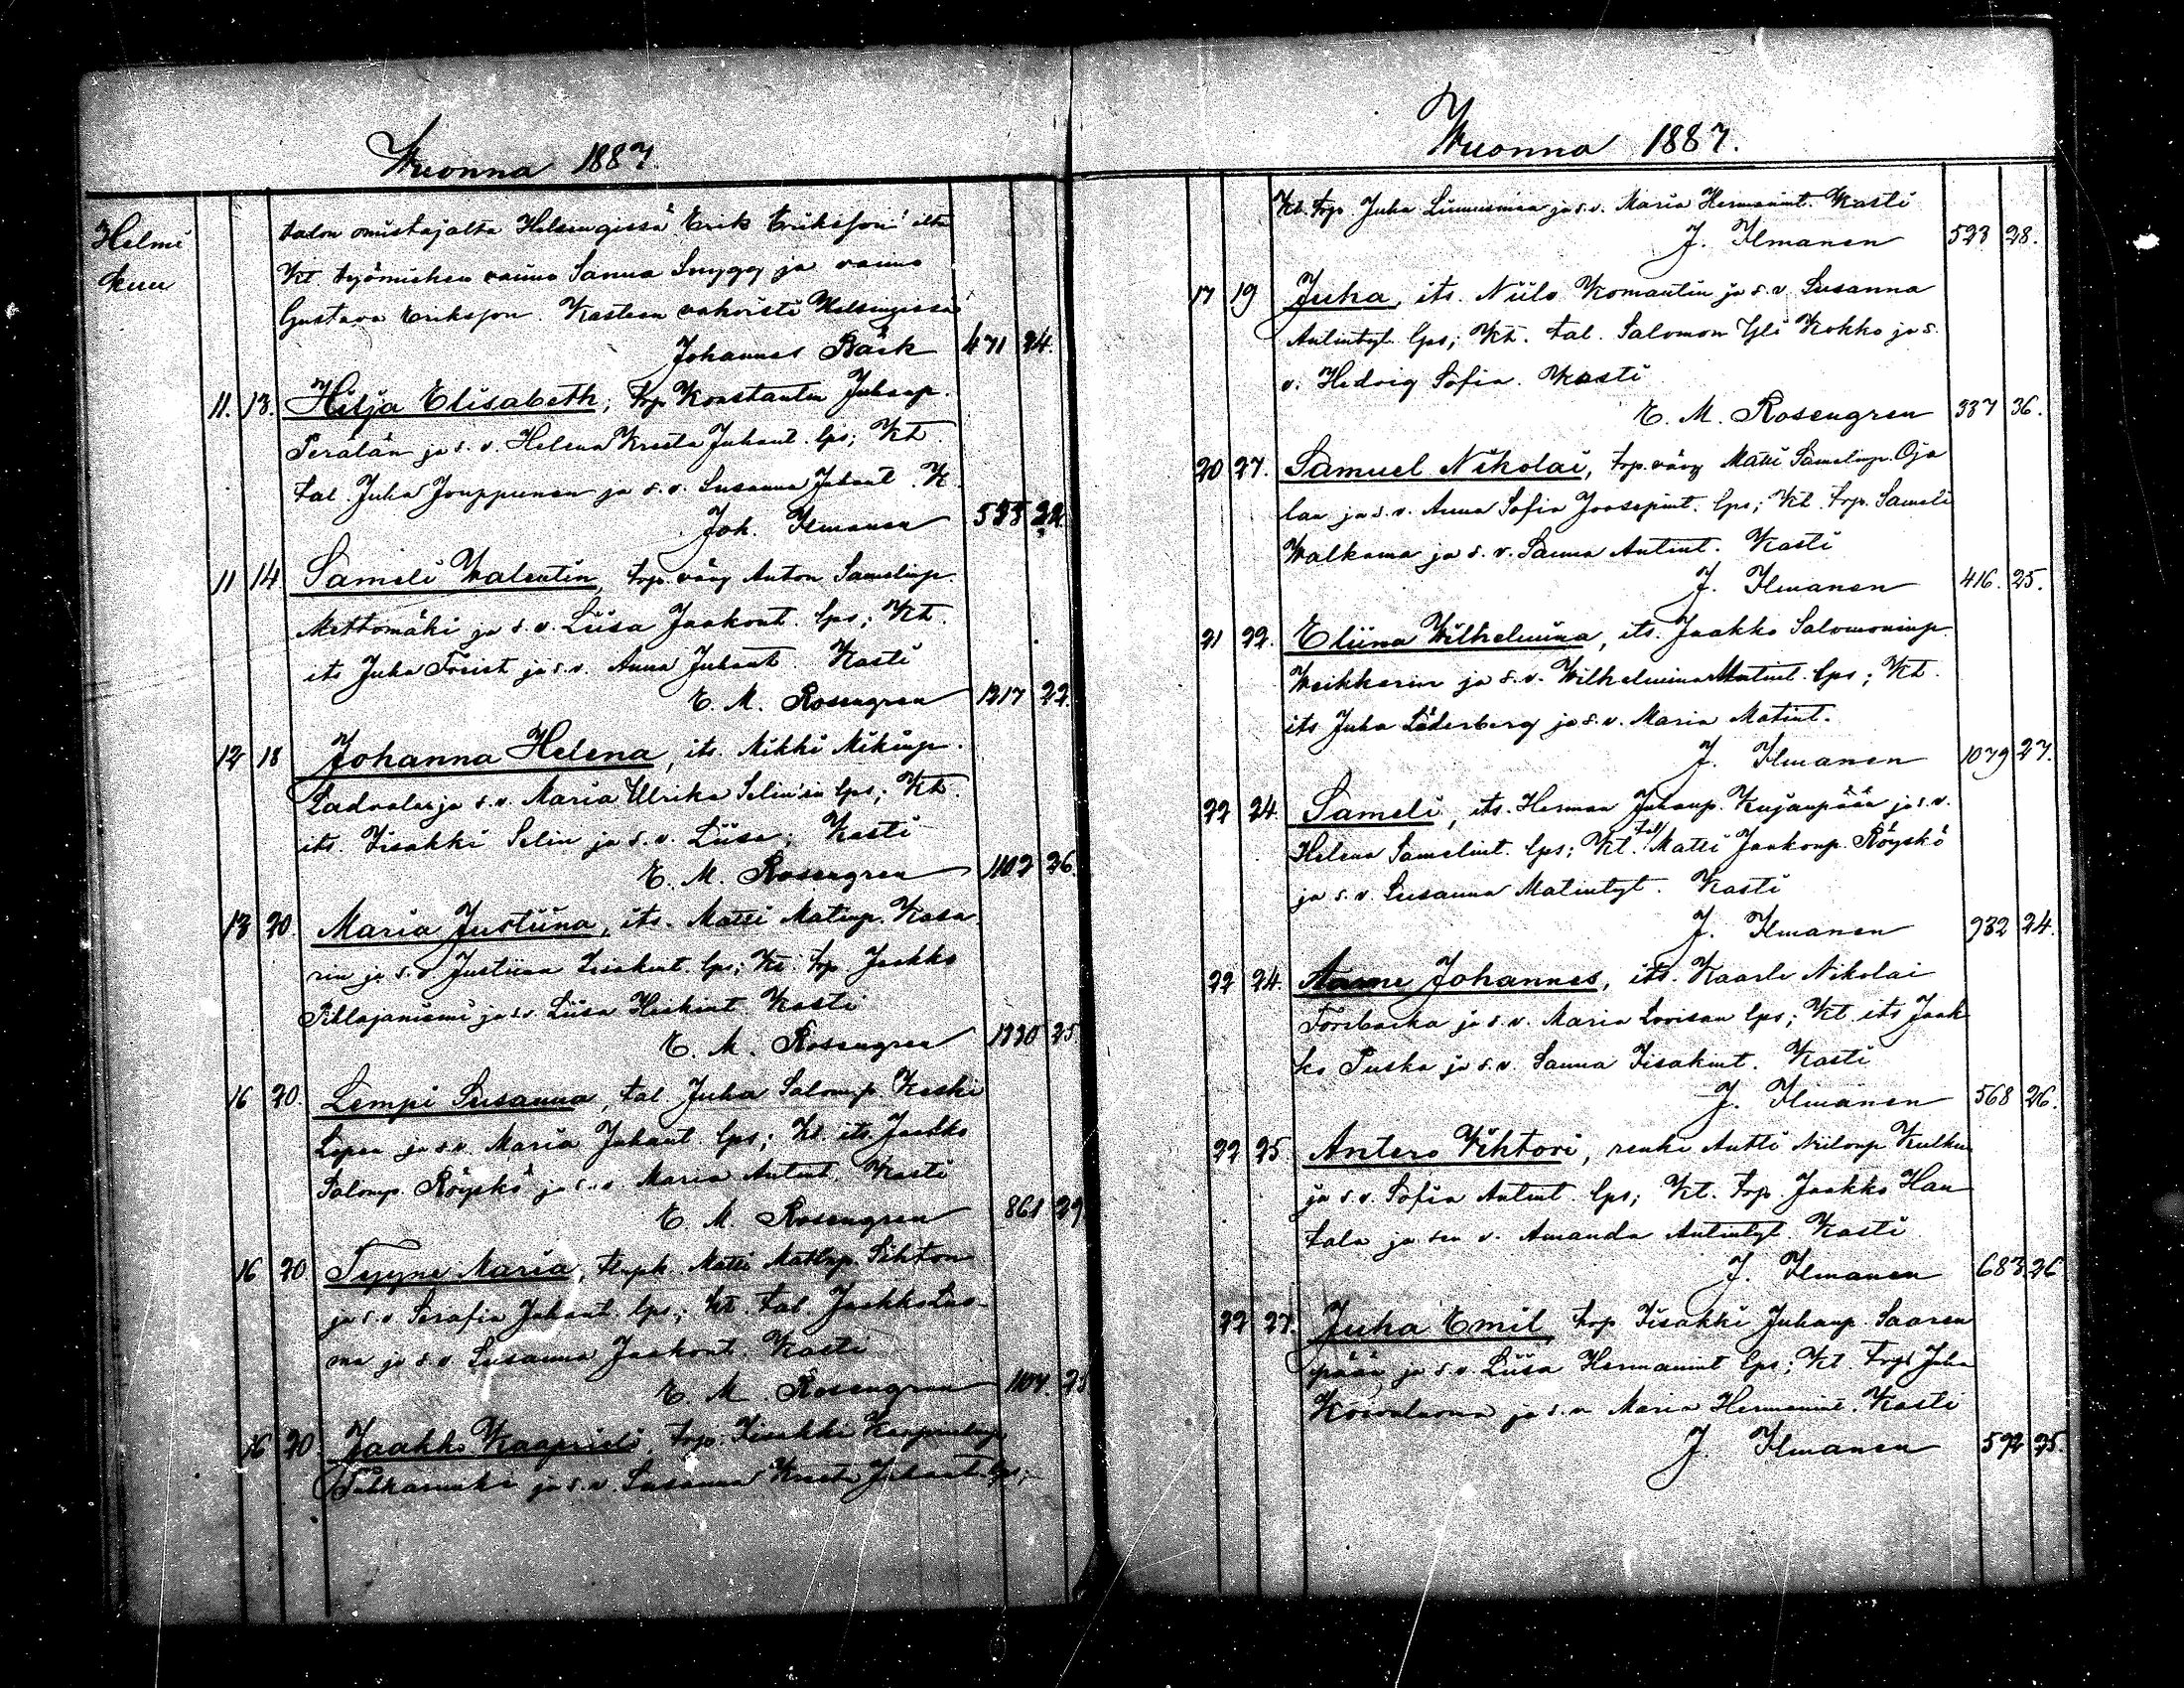 Wuonna 1887.
Helmi
kuu
talon omistajalta Helsingissä Erik Eriksson
Kt. työmiehen vaimo Sanna Snygg ja vaimo
Gustava Eriksson. Kasteen vahvisti Helsingissä
Johannes Bäck 471 24.
11. 13. Hilja Elisabeth, trp Konstantin Juhanp.
Perälän ja s. v. Helena Kreeta Juhant. lps; Kt.
tal. Juha Jouppunen ja s. v. Susanna Juhant. K.
Joh. Ilmanen
11 14 Sameli Walentin, trp. väv Anton Samelinp.
Mettomäki ja s. v. Liisa Jaakont. lps; Kt.
its Juha Freist ja s. v. Anna Juhant. Kasti
E. M. Rosengren 1217 22.
12 18 Johanna Helena, its. Mikki Mikinp.
Ladvala ja s. v. Maria Ulrika Selin'in lps; Kt.
its. Iisakki Selin ja s. v. Liisa; Kasti
E. M. Rosengren 1102 26.
13 20. Maria Justiina, its. Matti Matinp. Kasa
rin ja s. v. Justiina Iisakint. lps; Kt. trp Jaakko
Pihlajaniemi ja s. v. Liisa Heikint. Kasti
E. M. Rosengren 1330 25
16 20. Lempi Susanna, tal Juha Salomp. Keski
Lepen ja s. v. Maria Juhant. lps; Kt. its Jaakko
Salomp. Röyskö ja s. v. Maria Antint. Kasti
E. M. Rosengren 861 29
16 20 Tyyne Maria, Matti Matinp. Sihton
ja s. v. Serafia Juhant. lps; Kt. tal. Jaakko Luo-
ma ja s. v. Susanna Jaakont. Kasti
E. M. Rosengren 1104. 28
16 20. Jaakko Kaaprieli, trp. Iisakki Kaaprielinp.
ja s. v. Susanna Kreeta Juhant. lps;
Wuonna 1887.
Kt. trp. Juha Linnusmaa ja s. v. Maria Hermanint. Kasti
J. Ilmanen 523 28.
17 19 Juha, its. Niilo Komantin ja s. v. Susanna
Antintyt. lps; Kt. tal. Salomon Yli Kokko ja s.
v. Hedvig Sofia. Kasti
E. M. Rosengren 337 36.
20 27. Samuel Nikolai, trp. väv Matti Samelinp. Oja
lan ja s. v. Anna Sofia Joosepint. lps; Kt. trp. Sameli
Walkama ja s. v. Sanna Antint. Kasti
J. Ilmanen 416. 25.
21 22. Eliina Wilhelmiina, its. Jaakko Salomoninp.
Weikkerin ja s. v. Wilhelmiina Matint. lps; Kt.
its Juha Söderberg ja s. v. Maria Matint.
J. Ilmanen 1079 27.
22 24. Sameli, its. Herman Juhanp. Kujanpään ja s. v.
Helena Samelint. lps; Kt. tal Matti Jaakonp. Röyskö
ja s. v. Susanna Matintyt. Kasti
J. Ilmanen 932 24.
22 24. Aarne Johannes, its. Kaarle Nikolai
Forsbacka ja s. v. Maria Lovisan lps; Kt. its Jaak
ko Puska ja s. v. Sanna Iisakint. Kasti
J. Ilmanen 568 26.
22 25 Antero Wihtori, renki Antti Niilonp Kulku
ja s. v. Sofia Antint. lps; Kt. trp. Jaakko Han
tala ja sen v. Amanda Antintyt. Kasti
J. Ilmanen 683 26
22 27. Juha Emil, trp Iisakki Juhanp. Saaren
pään ja s. v. Liisa Hermanint lps; Kt. trp. Juha
Koivuluoma ja s. v. Maria Hermanint. Kasti
J. Ilmanen 592 25.